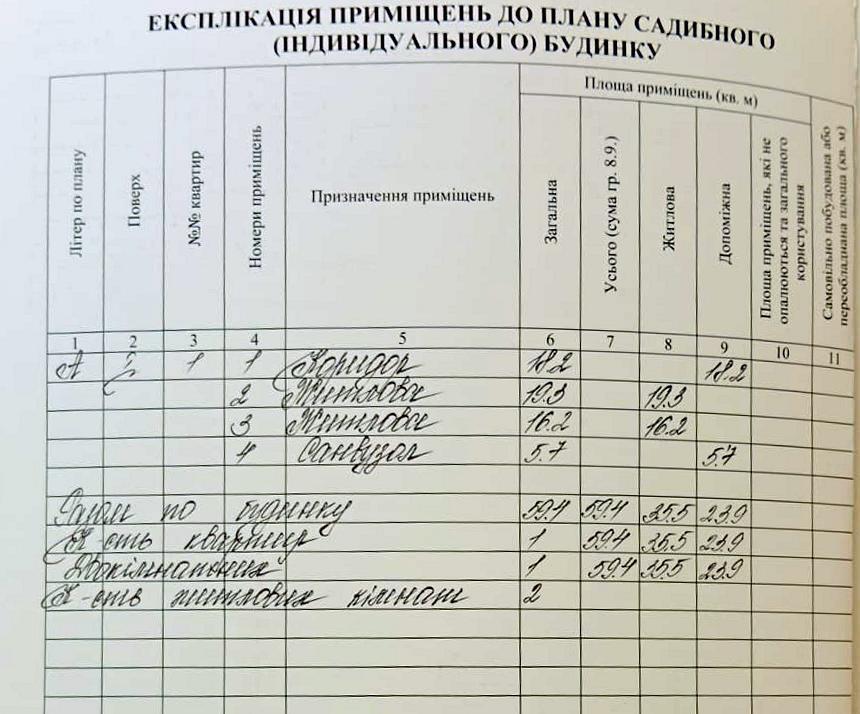 ЕКСПЛІКАЦІЯ ПРИМІЩЕНЬ ДО ПЛАНУ САДИБНОГО
(ІНДИВІДУАЛЬНОГО) БУДИНКУ
Літер по плану
Поверх
№№ квартир
Номери приміщень
Призначення приміщень
Площа приміщень (кв. м)
Загальна
Усього (сума гр. 8.9.)
Житлова
Допоміжна
Площа приміщень, які не
опалюються та загального
користування
Самовільно побудована або
переобладнана площа (кв. м)
1 2 3 4 5 6 7 8 9 10 11
А 2 1 1 Коридор 18.2 18.2
2 Житлова 19.3 19.3
3 Житлова 16.2 16.2
4 Санвузол 5.7 5.7
Разом по будинку 59.4 59.4 35.5 23.9
К-сть квартир 1 59.4 35.5 23.9
Двокімнатних 1 59.4 35.5 23.9
К-сть житлових кімнат 2